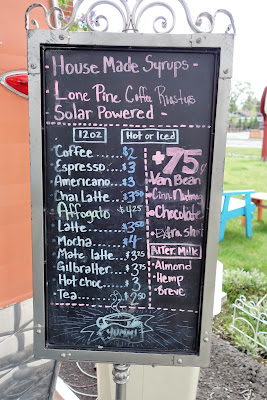 - House Made Syrups -
- Lone Pine Coffee Roasters
- Solar Powered -
12oz
Hot or Iced
Coffee...... $2
Espresso... $3
Americano.. $3
Chai latte.. $3.50
Affogato $4.25
Latte....... $3.50
Mocha...... $4
Mate latte... $3.75
Gilbralter... $3.75
Hot choc... $3
Tea........ $2.50
+ 75¢
Van Bean
Cinn. Nutmeg
Chocolate
Extra shot
Alter. Milk
Almond
Hemp
Breve
YUMM!